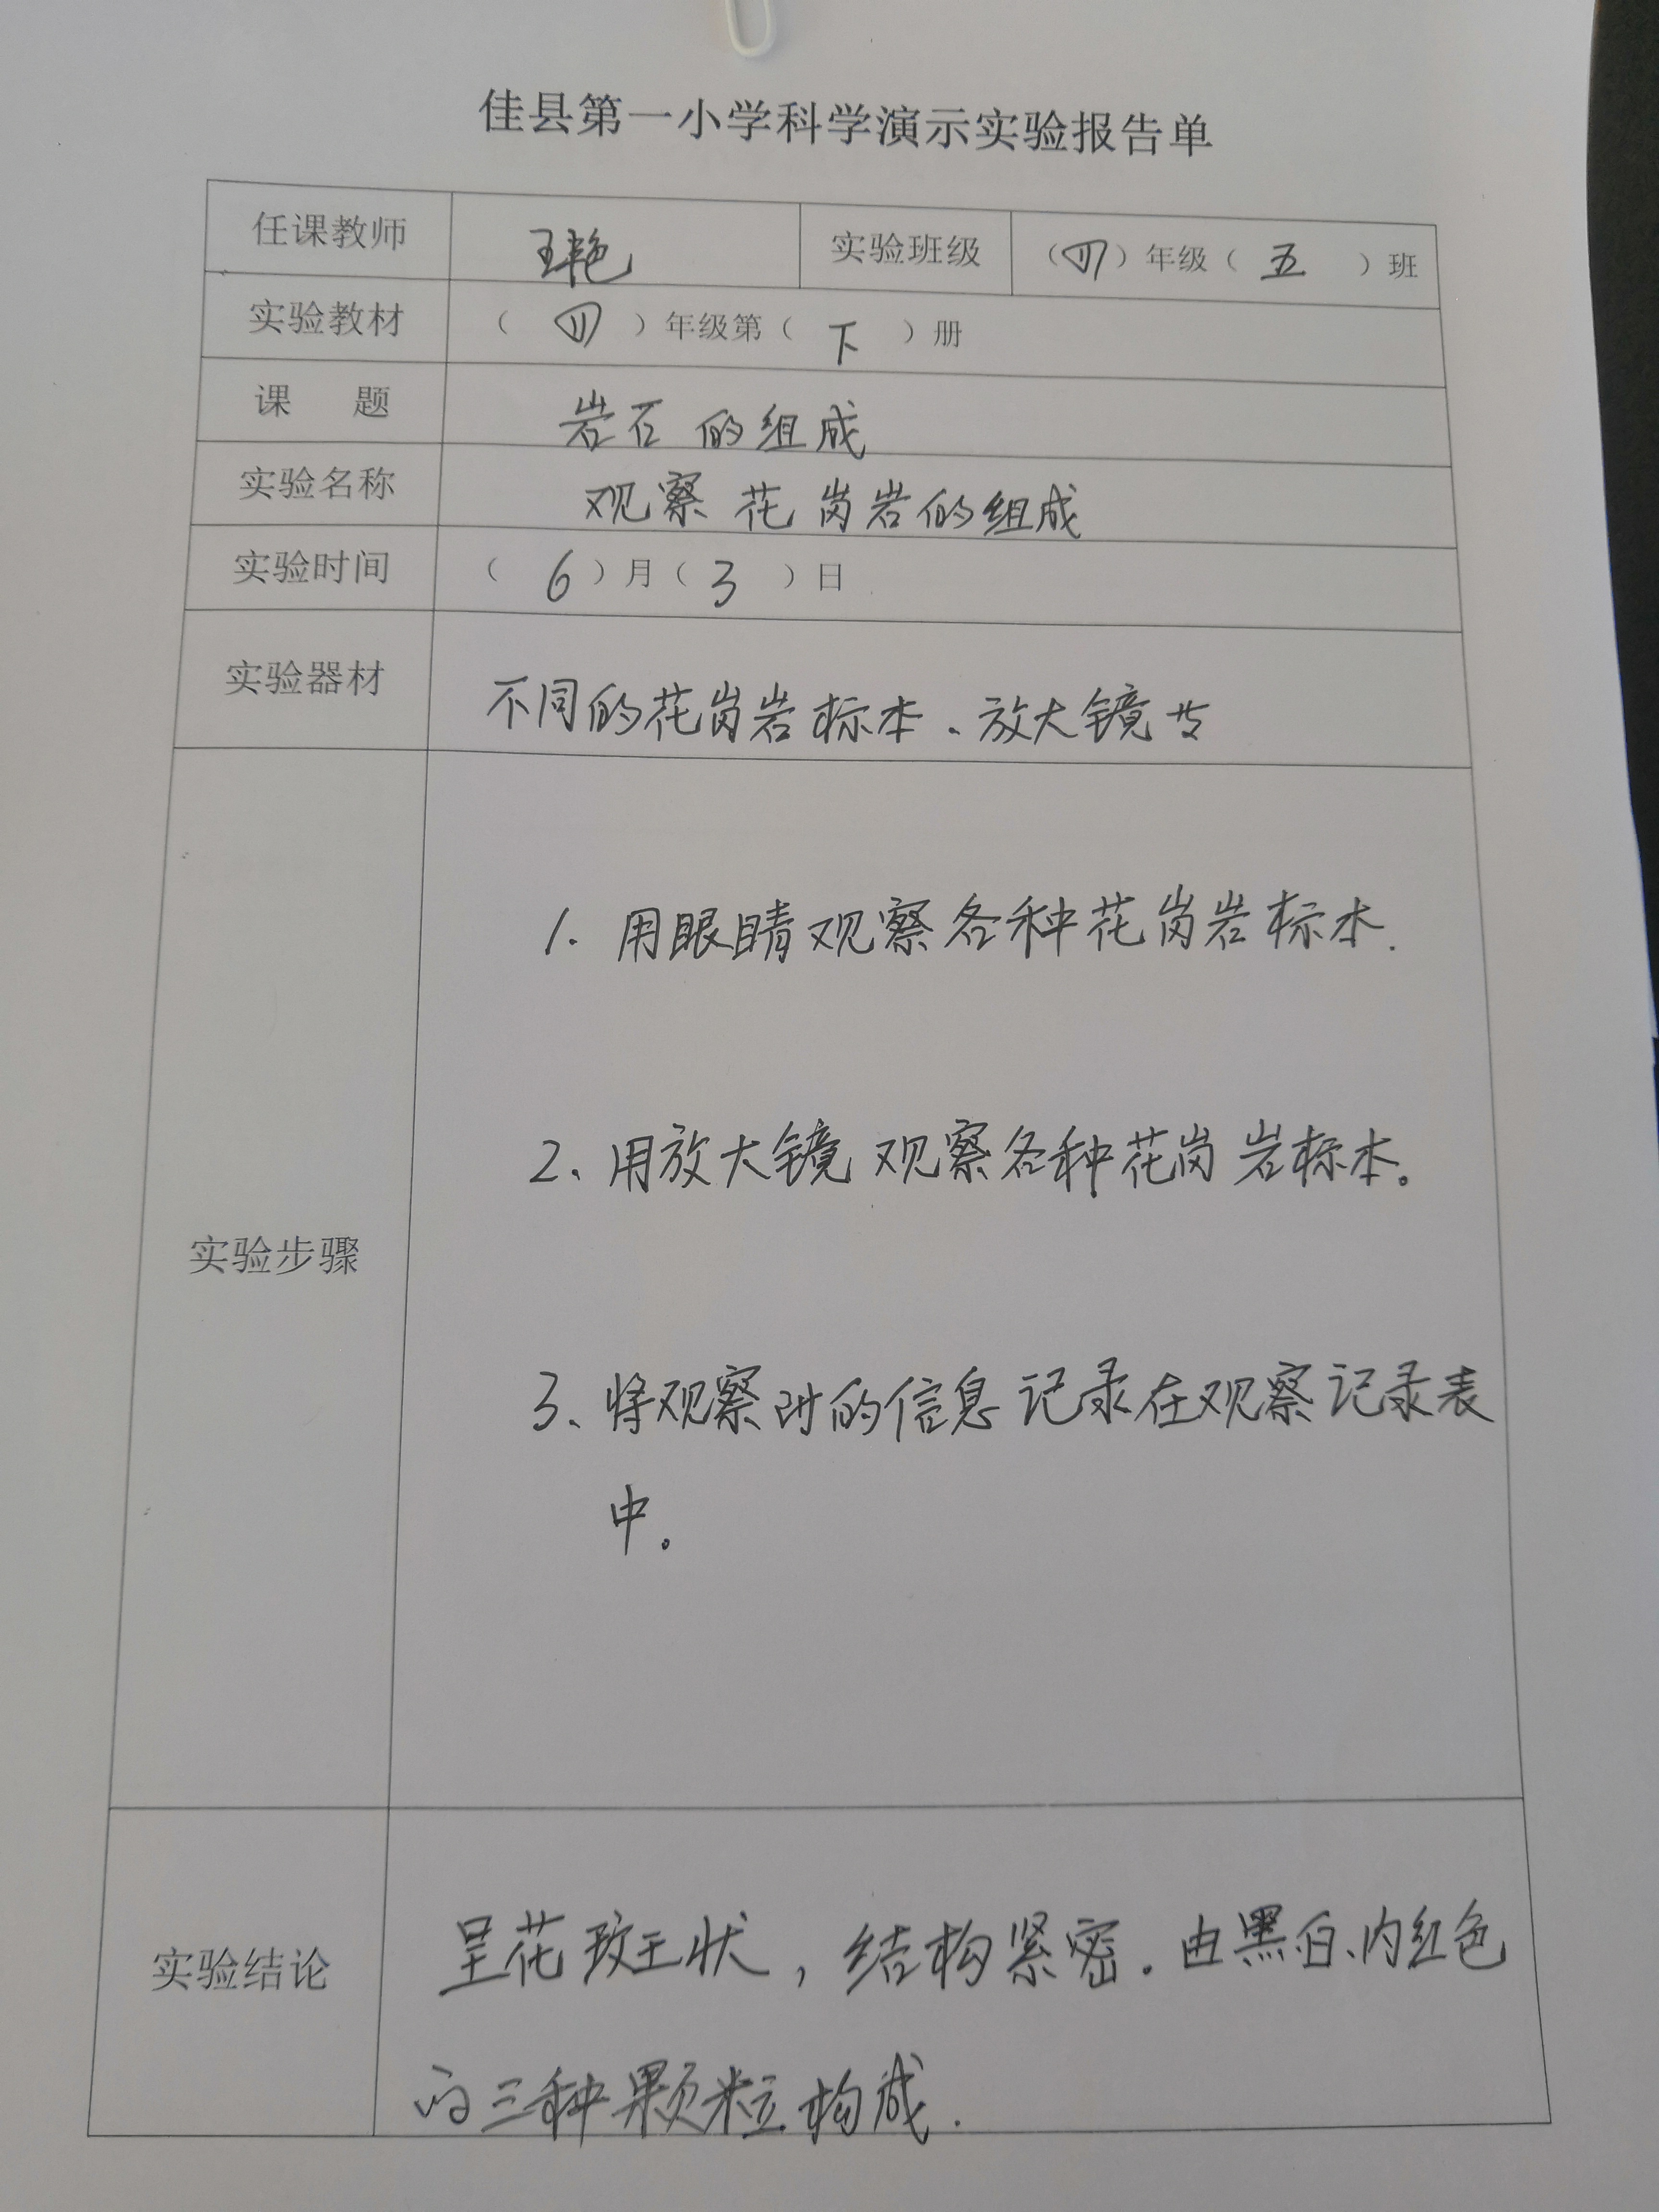 佳县第一小学科学演示实验报告单
任课教师 王艳 实验班级 （四）年级（五）班
实验教材 （四）年级第（下）册
课 题 岩石的组成
实验名称 观察花岗岩的组成
实验时间 （6）月（3）日
实验器材 不同的花岗岩标本、放大镜
1. 用眼睛观察各种花岗岩标本.
2、用放大镜观察各种花岗岩标本。
实验步骤
3、将观察时的信息记录在观察记录表
中。
呈花斑状，结构紧密.由黑、白、肉红色
实验结论
的三种颗粒构成.